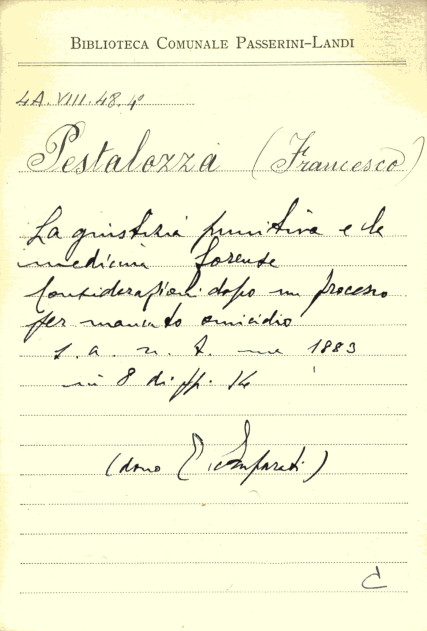 BIBLIOTECA COMUNALE PASSERINI-LANDI
4A.VIII.48.4°
Pestalozza (Francesco)
La giustizia punitiva e la
medicina forense
Considerazioni dopo un processo
per mancato omicidio
s. a. n. t. ma 1883
in 8 di pp. 14
(dono
C